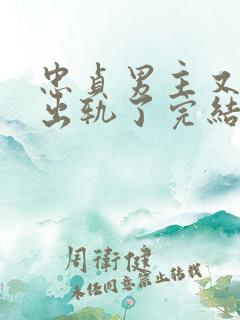 忠貞男主又
出軌了完結
周衛健
未经同意禁止转载